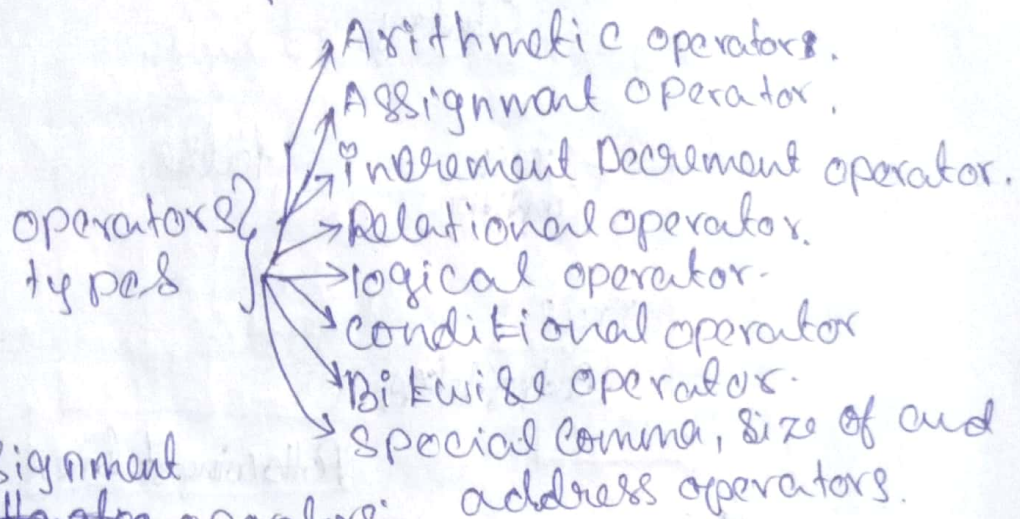 Arithmetic operators.
Assignment operator.
increment Decrement operator.
operators
Relational operator.
types
logical operator.
conditional operator
Bitwise operator.
special comma, size of and
address operators.
signment
operators: